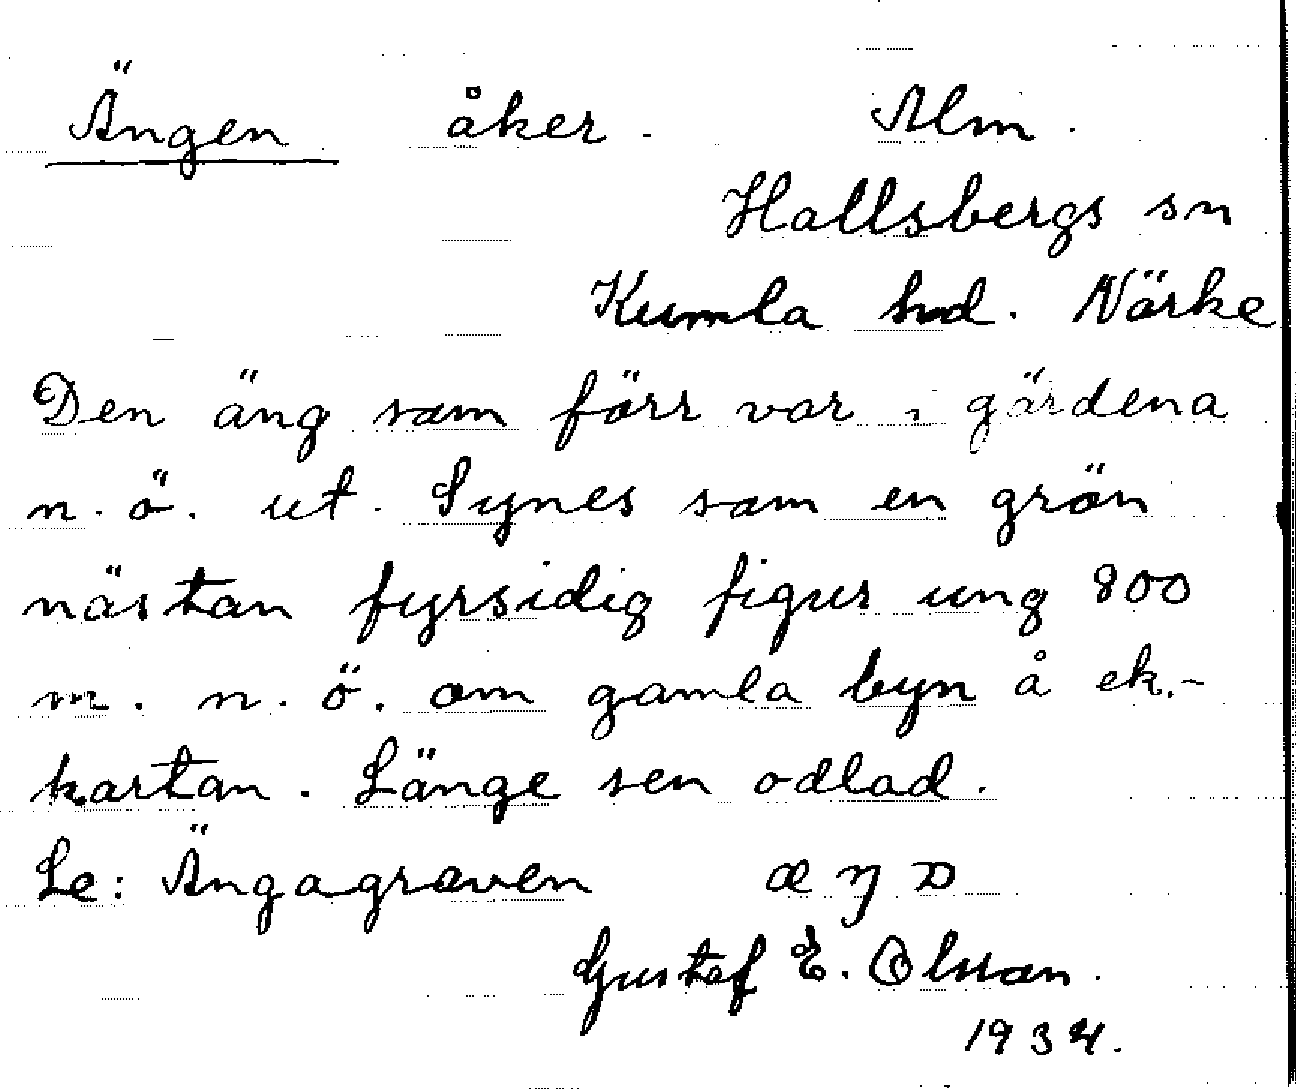 Ängen åker. Alm.
Hallsbergs sn
Kumla hd. Närke
Den äng som förr var i gärdena
n.ö. ut. Synes som en grön
nästan fyrsidig figur ung 800
m. n.ö. om gamla byn å ek.-
kartan. Länge sen odlad.
Se: Ängagraven
Gustaf E. Olsson.
1934.